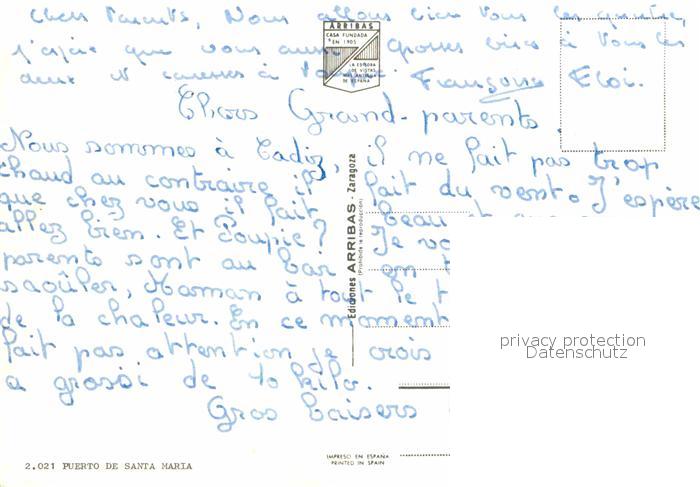 Chers Parents, Nous allons bien vous
j'espère que vous aussi grosses bises à vous
deux et caresses à Françoise Eloi.
ARRIBAS
CASA FUNDADA
EN 1905
LA EDITORA
DE VISTAS
MAS ANTIGUA
DE ESPAÑA
Chers Grand-parents
Nous sommes à Cadiz, il ne fait pas trop
chaud au contraire il fait du vent. J'espère
que chez vous il fait beau et que
allez bien. Et Poupie? Je vo
parents sont au bar en t
saoûler, Maman à tout le t
de la chaleur. En ce moment
fait pas attention je crois
a grossi de 10 kilo.
Gros baisers
Ediciones ARRIBAS - Zaragoza
(Prohibida la reproducción)
privacy protection
Datenschutz
IMPRESO EN ESPAÑA
PRINTED IN SPAIN
2.021 PUERTO DE SANTA MARIA